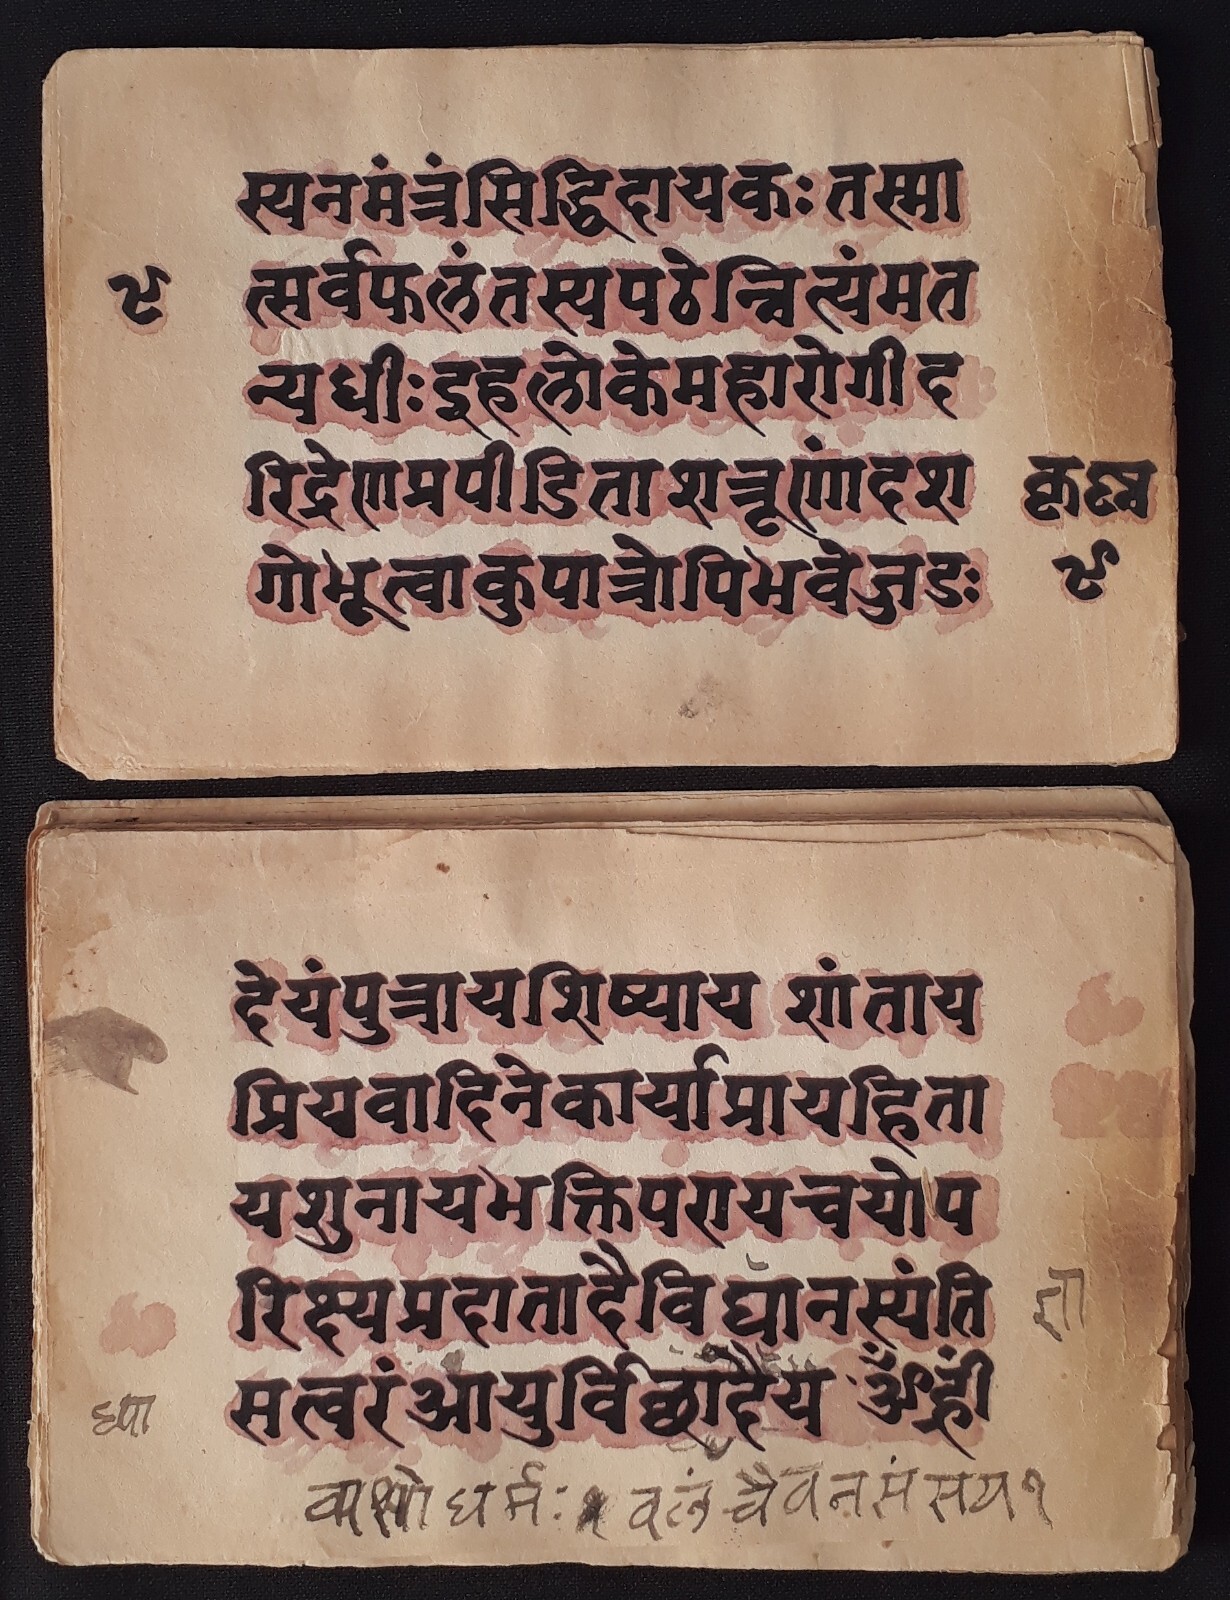 स्यनमंत्रंसिद्धिदायकः तस्मा
त्सर्वफलंतस्यपठेन्नित्यंमत
९
न्यधीः इहलोकेमहारोगीद
रिद्रेणप्रपीडिता शत्रूणांदश
गोभूत्वाकुपात्रोपिभवेज्जडः
९
देयंपुत्रायशिष्याय शांताय
प्रियवादिनेकार्याप्रायहिता
यशुनायभक्तिपरायचयोप
रिक्ष्यप्रदातादैविद्यानस्यंति
सत्वरंआयुर्विछादैय ॐह्रीं
धर्मः वलंचैवनसंसय१